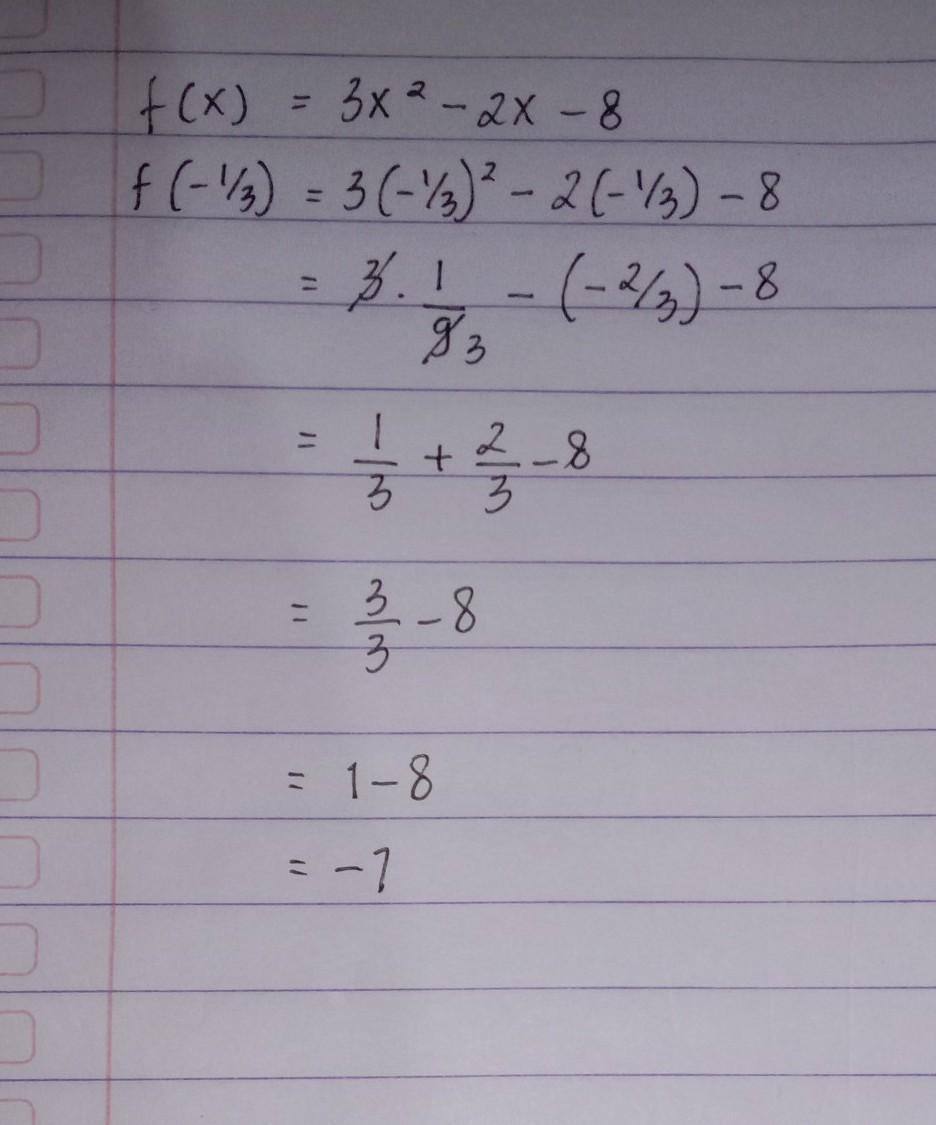 f(x) = 3x² - 2x - 8
f(-1/3) = 3(-1/3)² - 2(-1/3) - 8
= 3 · 1/9 3 - (-2/3) - 8
= 1/3 + 2/3 - 8
= 3/3 - 8
= 1 - 8
= -7